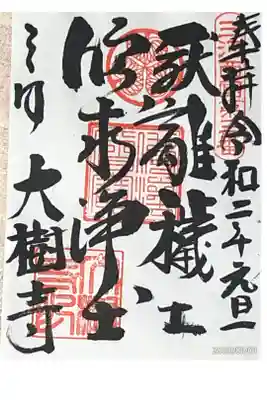 奉拝 令和二年元旦
厭離穢土
欣求浄土
三河 大樹寺